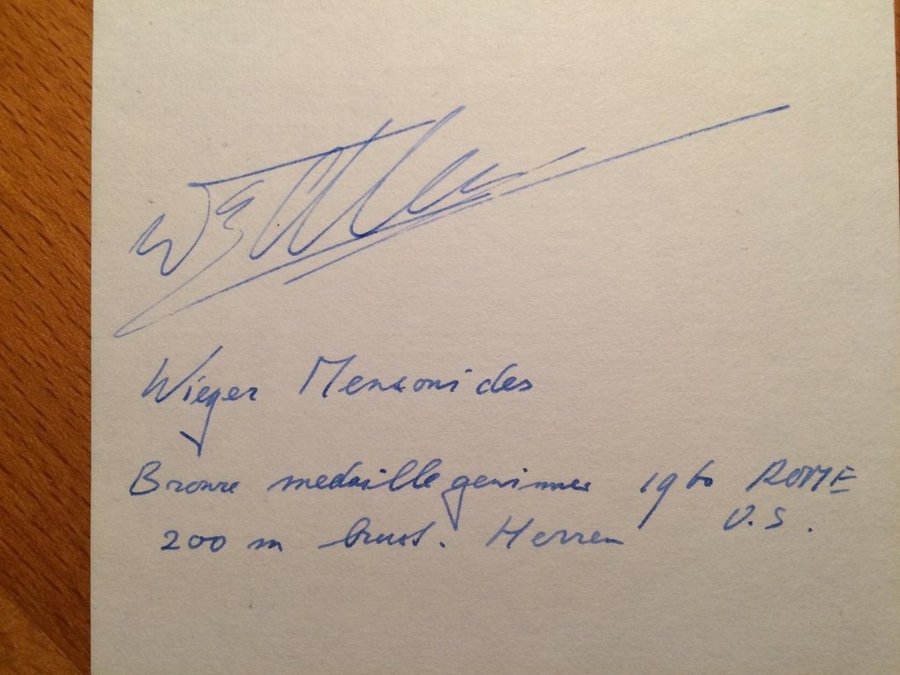 Wieger Mensonides
Bronze medaille gewinner 1960 ROME
O.S.
200 m brust. Herren